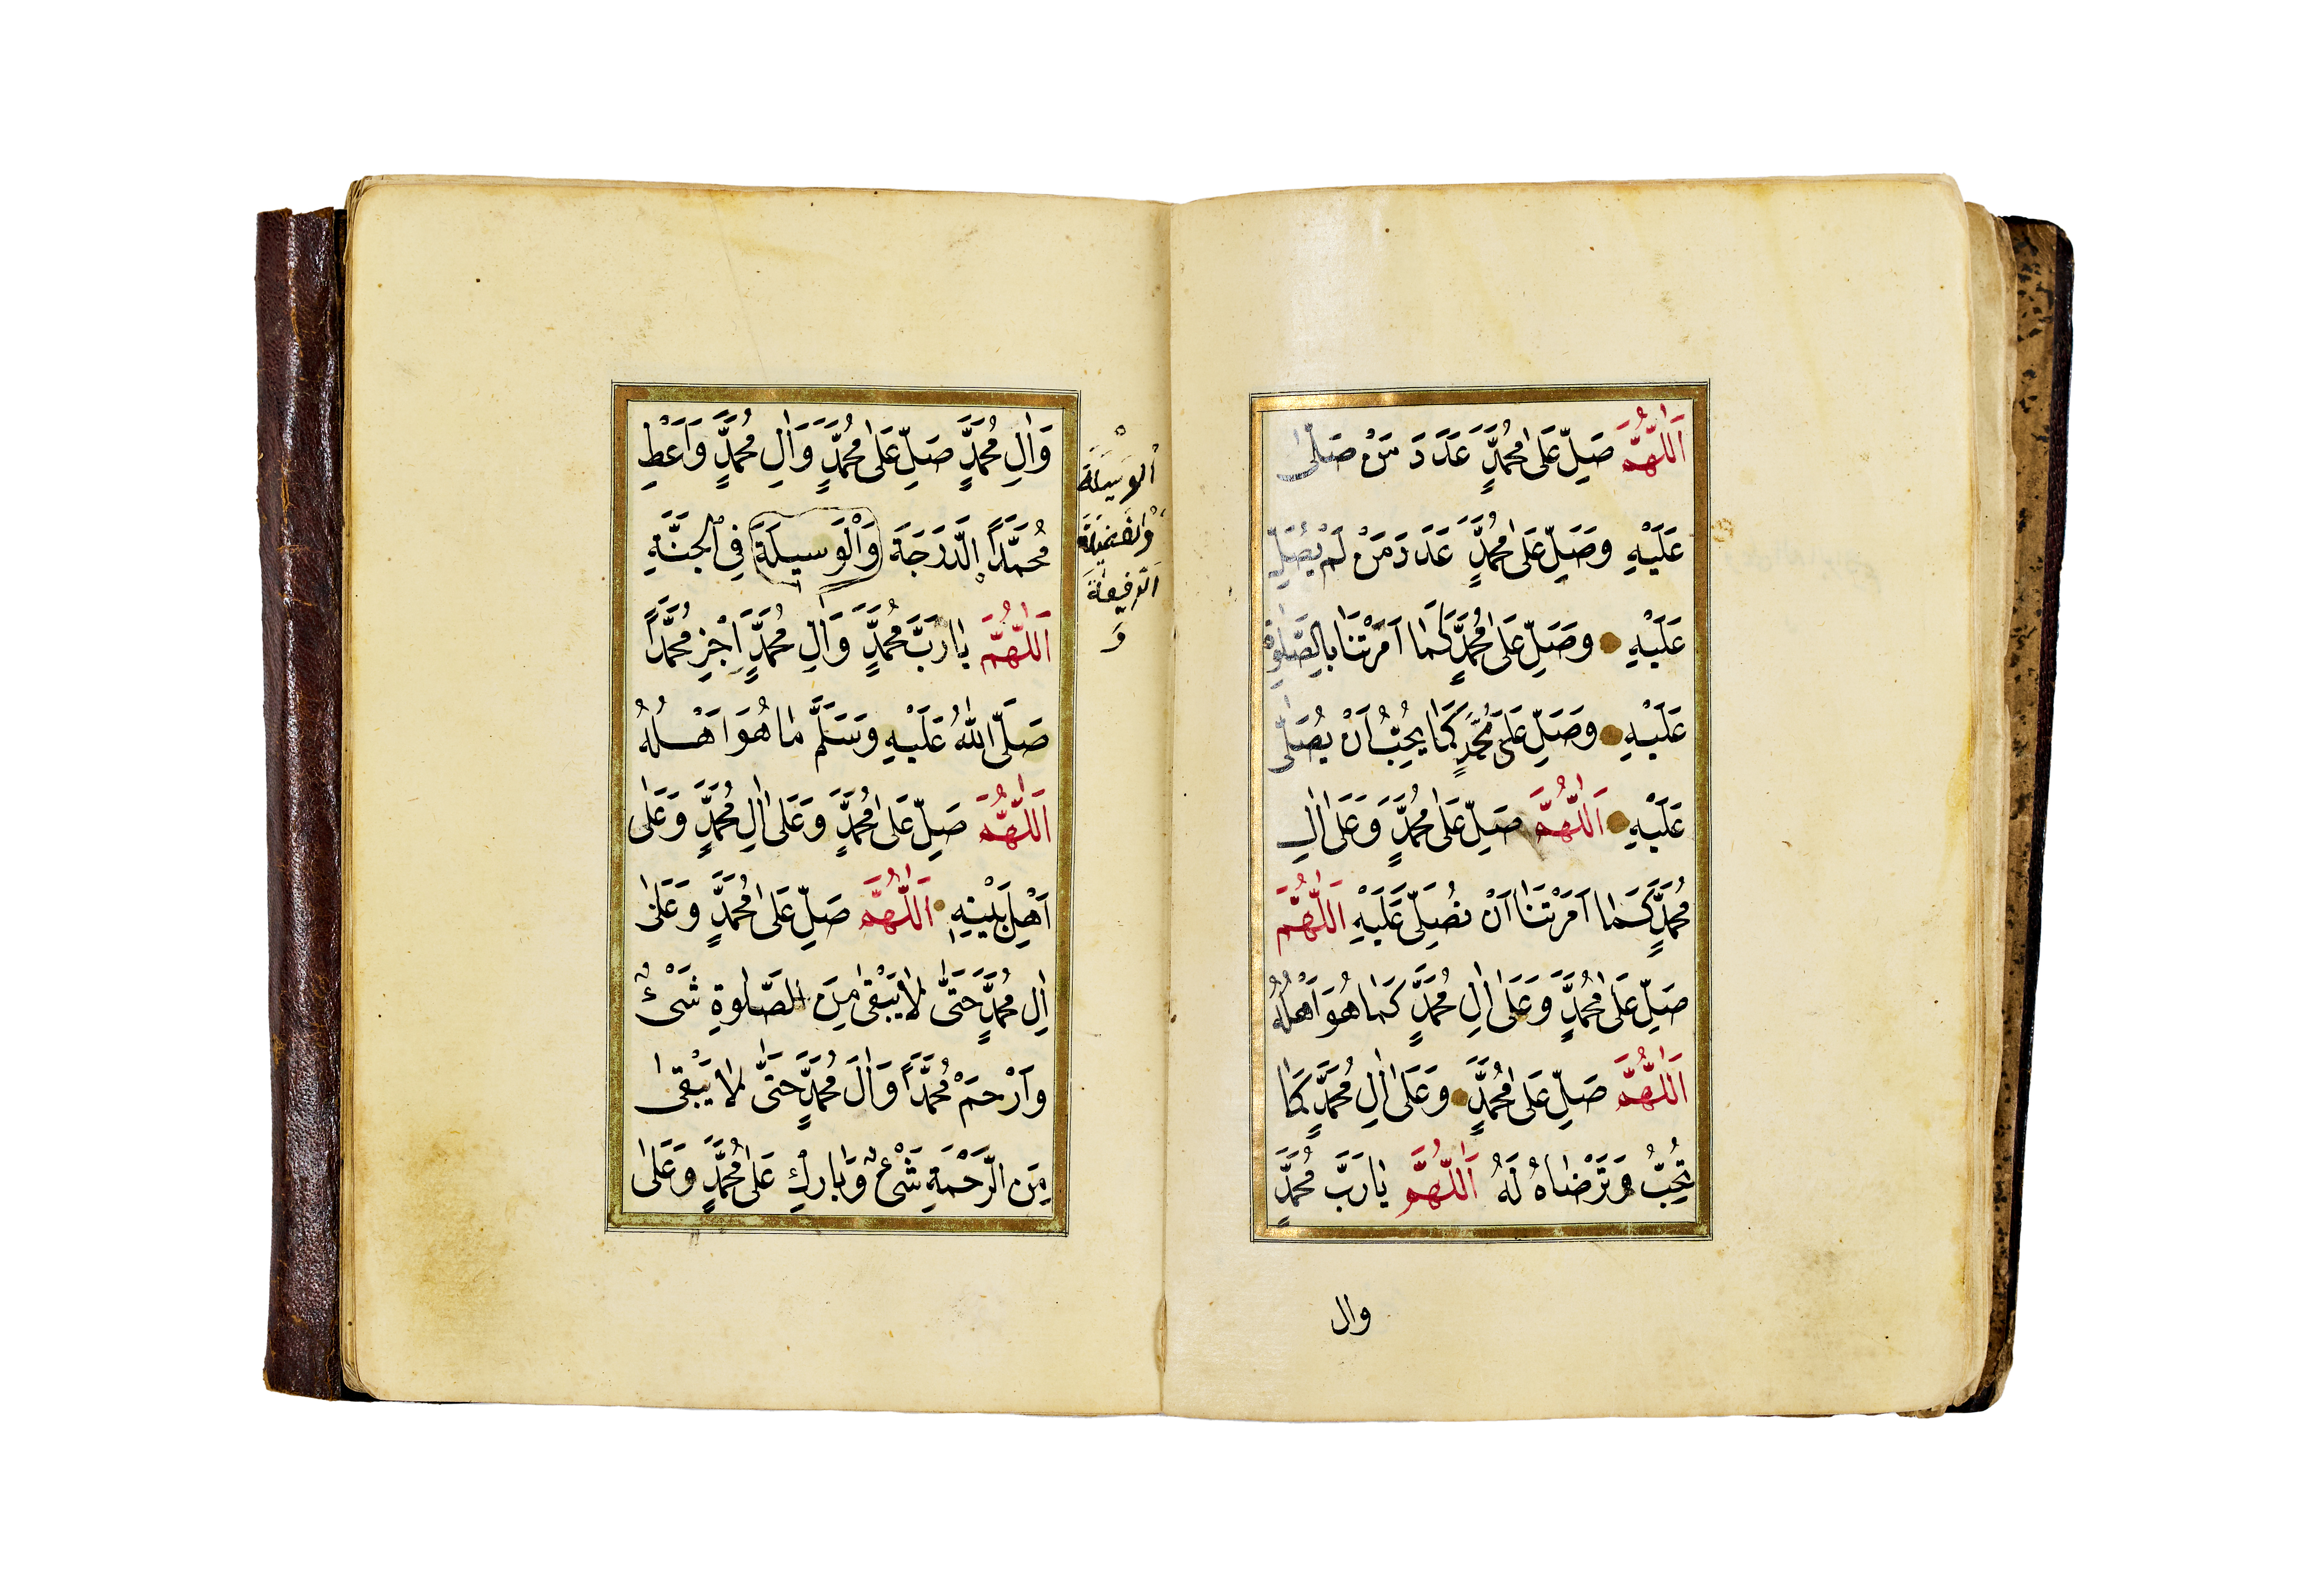 اَللّٰهُمَّ صَلِّ عَلٰى مُحَمَّدٍ عَدَدَ مَنْ صَلّٰى
عَلَيْهِ وَصَلِّ عَلٰى مُحَمَّدٍ عَدَدَ مَنْ لَمْ يُصَلِّ
عَلَيْهِ وَصَلِّ عَلٰى مُحَمَّدٍ كَمٰا اَمَرْتَنٰا بِالصَّلٰوةِ
عَلَيْهِ وَصَلِّ عَلٰى مُحَمَّدٍ كَمٰا يُحِبُّ اَنْ يُصَلّٰى
عَلَيْهِ اَللّٰهُمَّ صَلِّ عَلٰى مُحَمَّدٍ وَعَلٰى اٰلِ
مُحَمَّدٍ كَمٰا اَمَرْتَنٰا اَنْ نُصَلِّىَ عَلَيْهِ اَللّٰهُمَّ
صَلِّ عَلٰى مُحَمَّدٍ وَعَلٰى اٰلِ مُحَمَّدٍ كَمٰا هُوَ اَهْلُهُ
اَللّٰهُمَّ صَلِّ عَلٰى مُحَمَّدٍ وَعَلٰى اٰلِ مُحَمَّدٍ كَمٰا
تُحِبُّ وَتَرْضٰاهُ لَهُ اَللّٰهُمَّ يٰا رَبَّ مُحَمَّدٍ
وال
وَاٰلِ مُحَمَّدٍ صَلِّ عَلٰى مُحَمَّدٍ وَاٰلِ مُحَمَّدٍ وَاَعْطِ
مُحَمَّدًا اِلَّدرَجَةَ وَالْوَسيلَةَ فِي الْجَنَّةِ
اَللّٰهُمَّ يٰا رَبَّ مُحَمَّدٍ وَاٰلِ مُحَمَّدٍ اِجْزِ مُحَمَّدًا
صَلَّى اللّٰهُ عَلَيْهِ وَسَلَّمَ مٰا هُوَ اَهْلُهُ
اَللّٰهُمَّ صَلِّ عَلٰى مُحَمَّدٍ وَعَلٰى اٰلِ مُحَمَّدٍ وَعَلٰى
اَهْلِ بَيْتِهِ اَللّٰهُمَّ صَلِّ عَلٰى مُحَمَّدٍ وَعَلٰى
اٰلِ مُحَمَّدٍ حَتّٰى لٰا يَبْقٰى مِنَ الصَّلٰوةِ شَىْءٌ
وَارْحَمْ مُحَمَّدًا وَاٰلَ مُحَمَّدٍ حَتّٰى لٰا يَبْقٰى
مِنَ الرَّحْمَةِ شَىْءٌ وَبٰارِكْ عَلٰى مُحَمَّدٍ وَعَلٰى
الْوَسيلَةَ
وَالْفَضيلَةَ
الرَّفيعَةَ
وَ